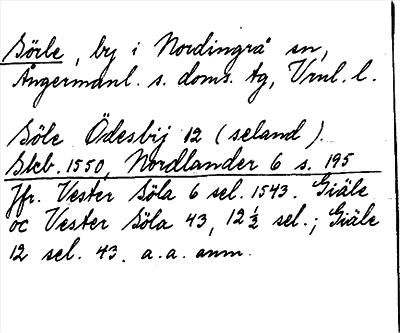 Sörle, by i Nordingrå sn,
Ångermanl. s. doms. tg, Vrnl. l.
Söle Ödesbij 12 (seland).
Skb. 1550, Nordlander 6 s. 195
Jfr. Vester Söla 6 sel. 1543. Giäle
oc Vester Söla 43, 12½ sel.; Giäle
12 sel. 43. a.a. anm.